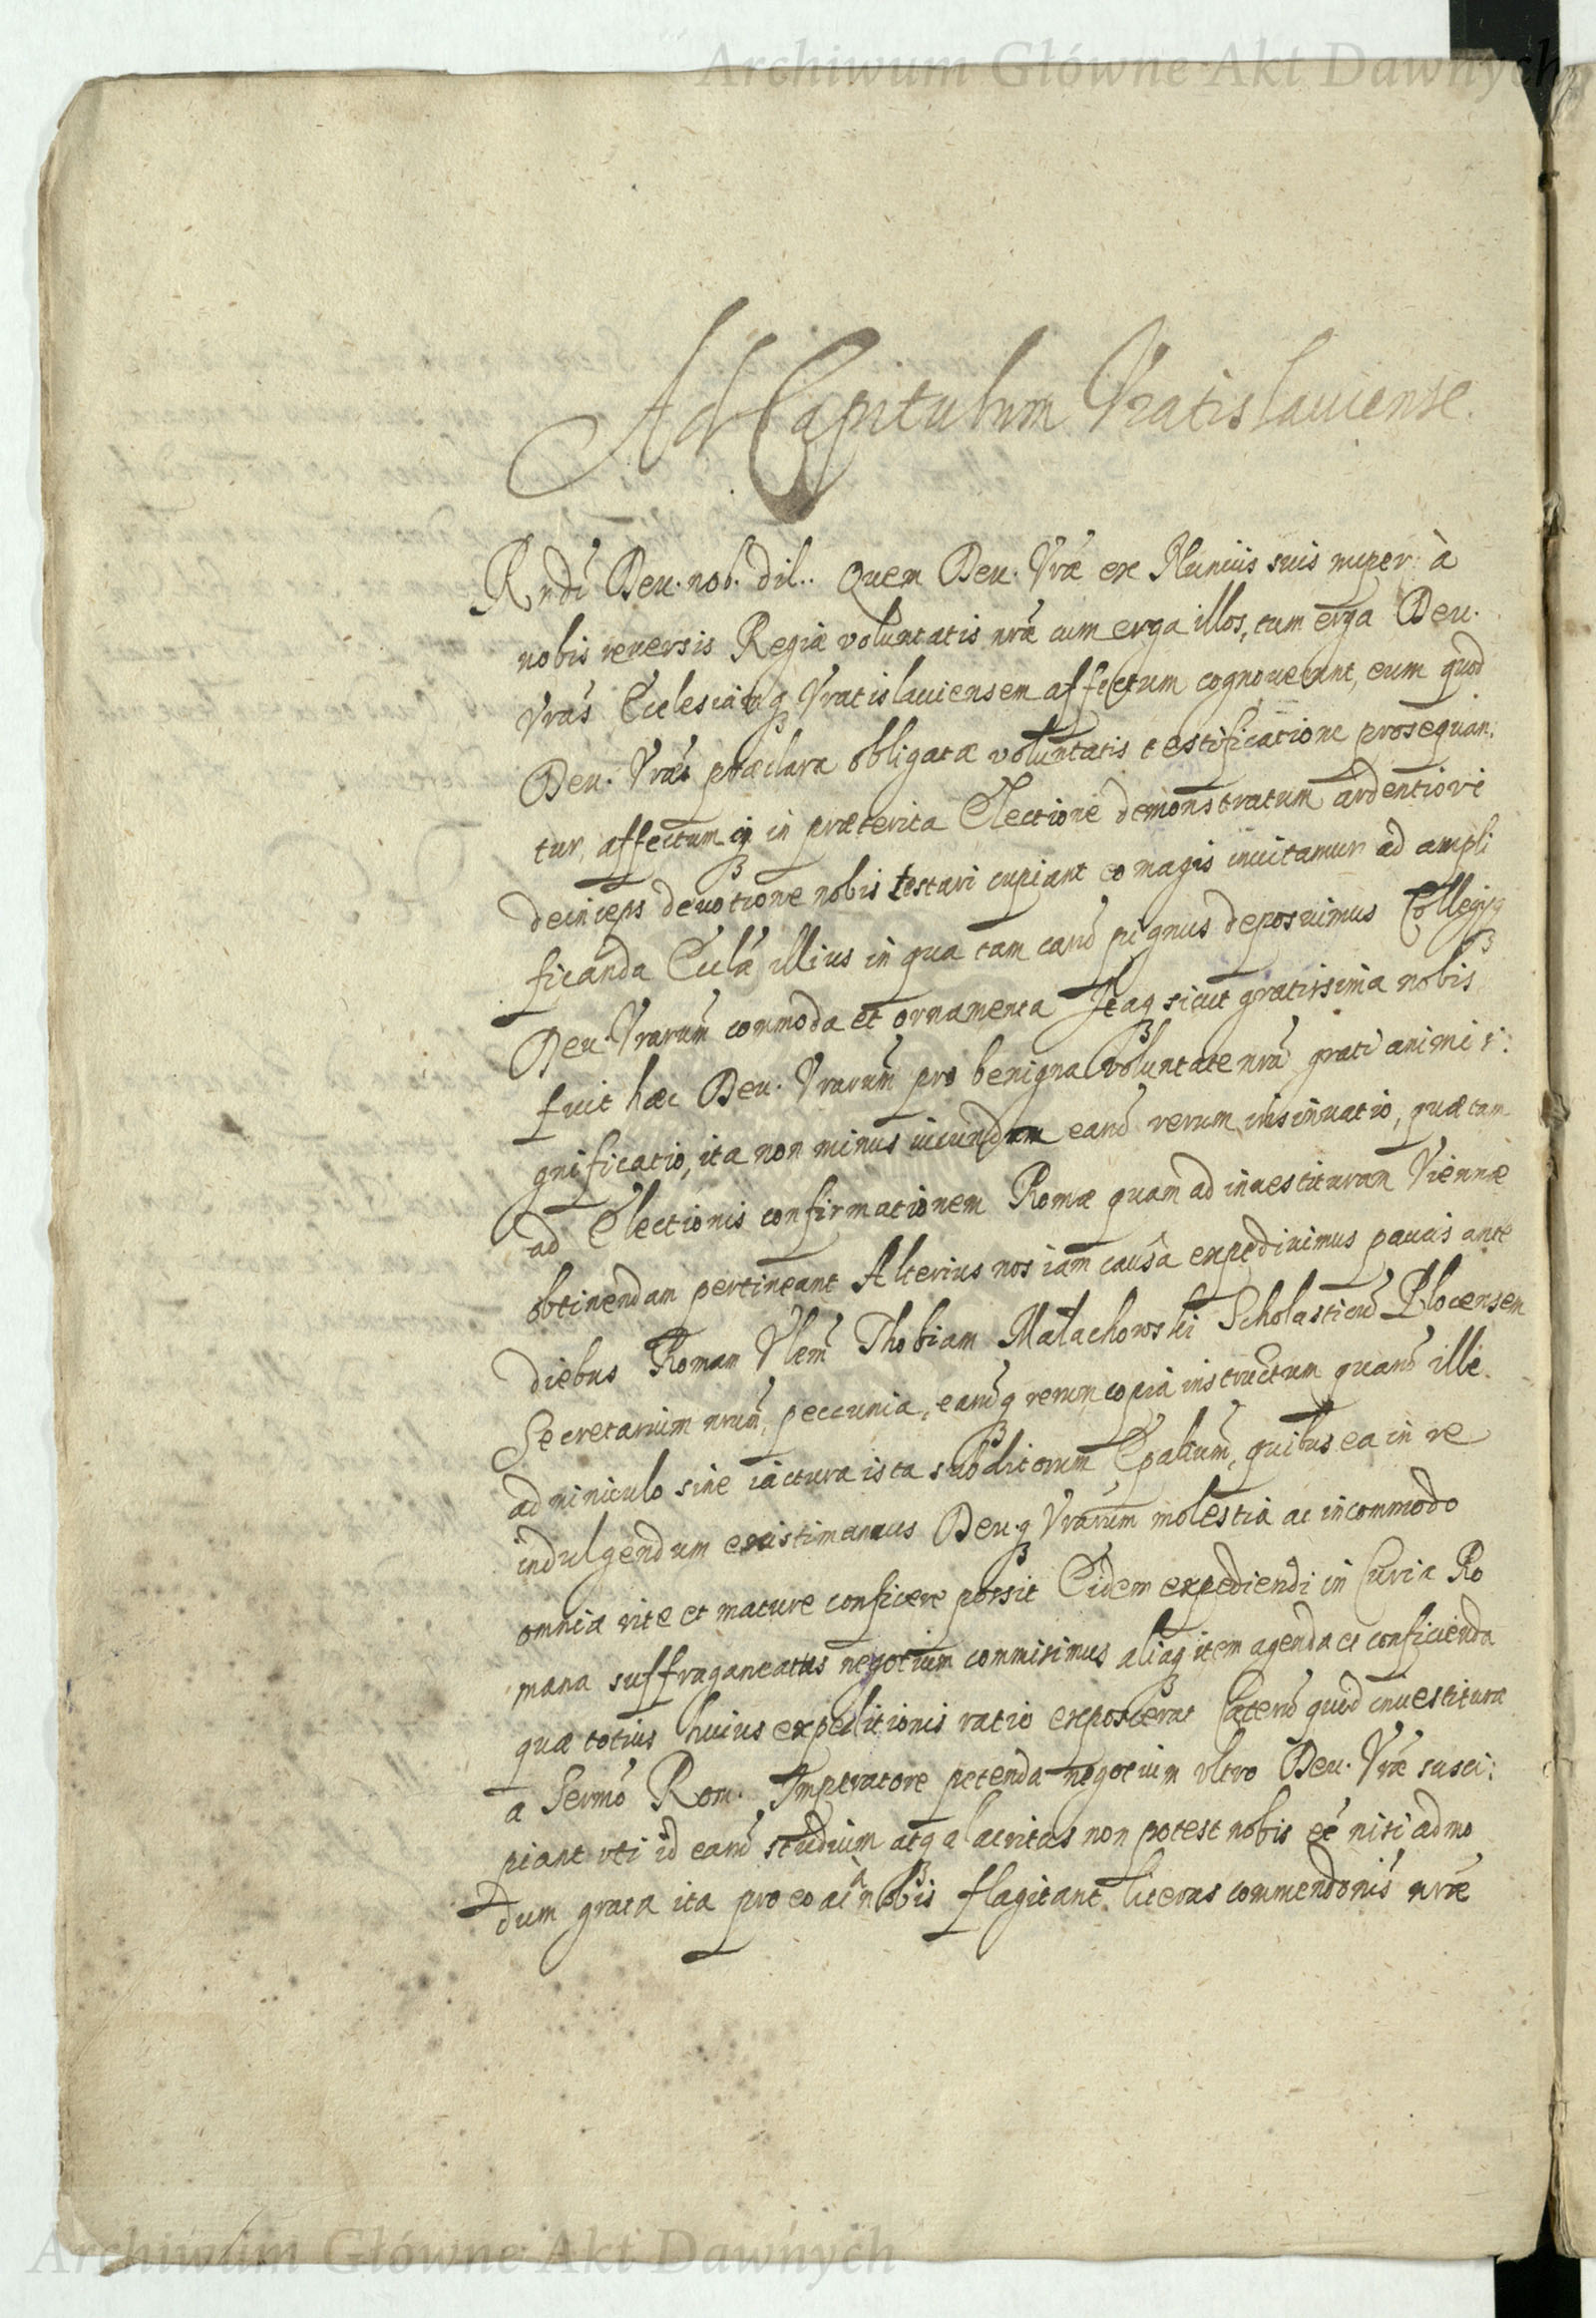 Archiwum Główne Akt Dawnych
Ad Capitulum Vratislauiense.
Rndi Deu. nob. dil.. Quem Deu. Vræ ex Nuncijs suis nuper à
nobis reuersis Regiæ voluntatis nræ cum erga illos, tum erga Deu.
Vras Ecclesiamq3 Vratislauiensem affectum cognouerunt, eum quod
Deu. Vræ præclara obligatæ voluntatis testificatione prosequan:
tur, affectumq3 in præterita Electione demonstratum ardentiori
deinceps deuotione nobis testari cupiant eo magis inuitamur ad ampli
ficanda Eclæ illius in qua tam carũ pignus deposuimus Collegijq3
Deu. Vrarum commoda et ornamenta Itaq3 sicut gratissima nobis
fuit hæc Deu. Vrarum pro benigna voluntate nra grati animi si:
gnificatio, ita non minus iucunda earũ rerum insinuatio, quæ tam
ad Electionis confirmationem Romæ quam ad inuestituram Viennæ
obtinendam pertineant Alterius nos iam causa expediuimus paucis ante
diebus Romam Vlem Thobiam Małachowski Scholasticũ Plocensem
Secretarium nrum, peccunia, earũq3 rerum copia instructum quarũ ille
adminiculo sine iactura ista subditorum Epalium, quibus ea in re
indulgendum existimamus Deu.q3 Vrarum molestia ac incommodo
omnia rite et mature conficere possit Eidem expediendi in Curia Ro
mana suffraganeatus negotium commisimus aliaq3 item agenda et conficienda
quæ totius huius expeditionis ratio exposcerat Cæterũ quod inuestituræ
a Sermo Rom. Imperatore petenda negotium vltro Deu. Vræ susci:
piant vti id earũ studium atq3 alacritas non potest nobis eẽ nisi admo
dum grata ita pro eo ac à nobis flagitant literas commendonis nræ
Archiwum Główne Akt Dawnych